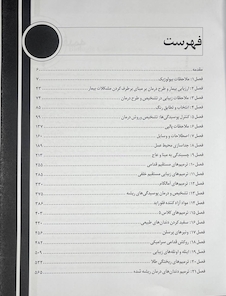 فهرست
مقدمه
فصل ۱: ملاحظات بیولوژیک
فصل ۲: ارزیابی بیمار و طرح درمان بر مبنای برطرف کردن مشکلات بیمار
فصل ۳: ملاحظات زیبایی در تشخیص و طرح درمان
فصل ۴: انتخاب و تطابق رنگ
فصل ۵: کنترل پوسیدگی‌ها: تشخیص و روش درمان
فصل ۶: ملاحظات پالپی
فصل ۷: اصطلاحات و وسایل
فصل ۸: جداسازی محیط عمل
فصل ۹: چسبندگی به مینا و عاج
فصل ۱۰: ترمیم‌های مستقیم قدامی
فصل ۱۱: ترمیم‌های زیبایی مستقیم خلفی
فصل ۱۲: ترمیم‌های آمالگام
فصل ۱۳: تشخیص و درمان پوسیدگی‌های ریشه
فصل ۱۴: مواد آزاد کننده فلوراید
فصل ۱۵: ترمیم‌های کلاس ۵
فصل ۱۶: سفید کردن دندان‌های طبیعی
فصل ۱۷: ونیرهای پرسلن
فصل ۱۸: روکش قدامی سرامیکی
فصل ۱۹: اینله و اونله‌های زیبایی
فصل ۲۰: ترمیم‌های ریختگی طلا
فصل ۲۱: ترمیم دندان‌های درمان ریشه شده